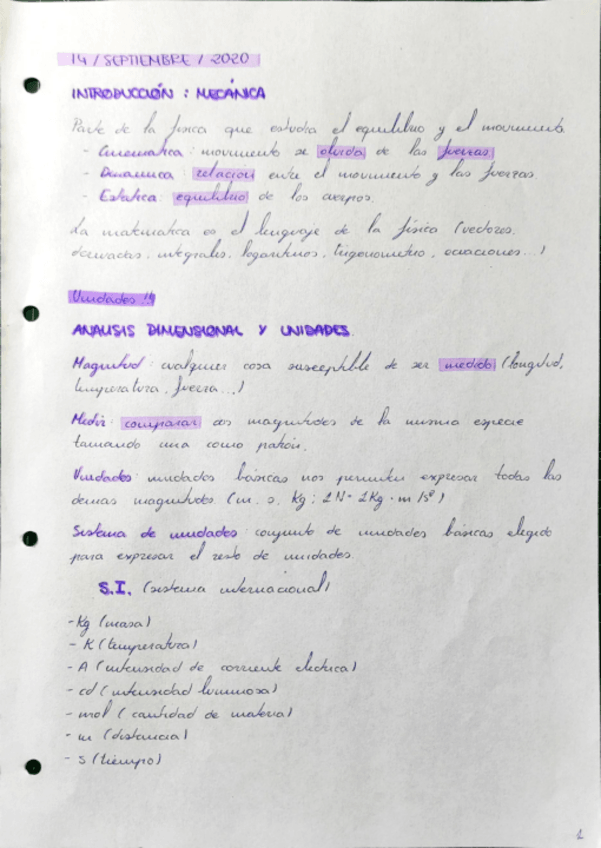 14 / SEPTIEMBRE / 2020
INTRODUCCIÓN : MECÁNICA
Parte de la física que estudia el equilibrio y el movimiento.
- Cinematica : movimiento se olvida de las fuerzas
- Dinamica : relacion entre el movimiento y las fuerzas.
- Estatica : equilibrio de los cuerpos.
La matematica es el lenguaje de la física (vectores,
derivadas, integrales, logaritmos, trigonometria, ecuaciones...)
Unidades !!
ANALISIS DIMENSIONAL Y UNIDADES.
Magnitud : cualquier cosa susceptible de ser medida (longitud,
temperatura, fuerza...)
Medir : comparar dos magnitudes de la misma especie
tomando una como patrón.
Unidades : unidades básicas nos permiten expresar todas las
demas magnitudes. (m, s, Kg ; 1N = 1Kg · m/s²)
Sistema de unidades : conjunto de unidades básicas elegido
para expresar el resto de unidades.
S.I. (sistema internacional)
- Kg (masa)
- K (temperatura)
- A (intensidad de corriente electrica)
- cd (intensidad luminosa)
- mol (cantidad de materia)
- m (distancia)
- s (tiempo)
1